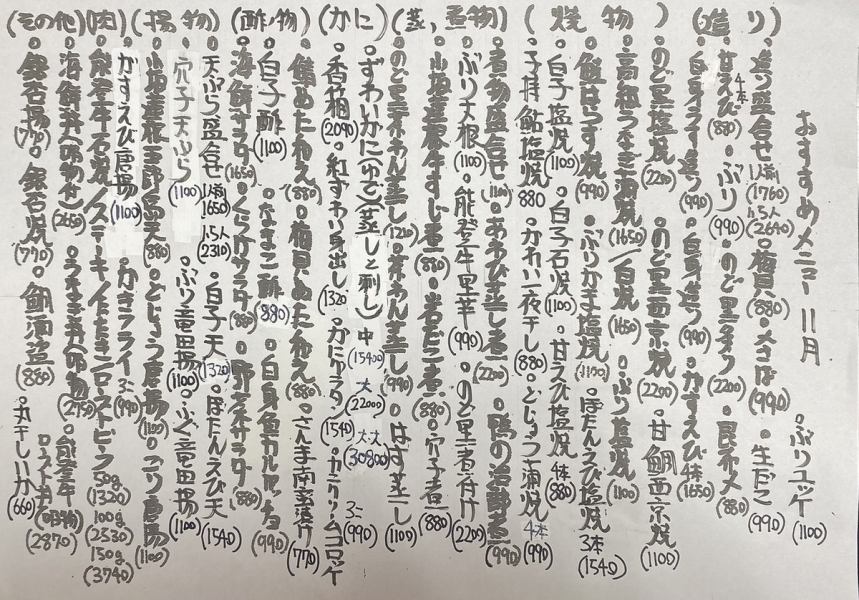 おすすめメニュー 11月
(造り)
造り盛合せ 1人前(1760) 1.5人(2640)・梅貝(880)・メコば(990)・生だこ(990)・ぶりユッケ(1100)
甘えび 4本(880)・ぶり(990)・のど黒タタ(2200)・昆布〆(880)
造り(990)・白身造り(990)・がすえび 4本(1650)
(焼物)
のど黒塩焼(2200)・のど黒西京焼(2200)・甘鯛西京焼(1100)
高級うなぎ蒲焼(1650)/白焼(1650)・ぶり塩焼(1100)
鮭はらす焼(990)・ぶりかま塩焼(1100)・ぼたんえび塩焼 3本(1540)
・白子塩焼(1100)・白子石焼(1100)・甘えび塩焼 4本(880)
・子持鮎塩焼 880・かれい一夜干し(880)・どじょう蒲焼 4本(990)
(蒸、煮物)
煮物盛合せ(1100)・あわび蒸し煮(2200)・鴨の治部煮(990)
・ぶり大根(1100)・能登牛里芋(990)・のど黒煮付け(2200)
・小坂蓮根牛すじ煮(880)・岩だこ煮(880)・穴子煮(880)
・のど黒茶わん蒸し(1210)・茶わん蒸し(990)・はす蒸し(1100)
(かに)
・ずわいかに(ゆで)(蒸しと刺し) 中(15400) 大(22000) 大大(30800)
・香箱(2090)・紅ずわい身出し(1320)・かにサラダ(1540)・カニクリームコロッケ 3コ(990)
(酢ノ物)
・鮭ぬた和え(880)・梅貝ぬた和え(880)・さんま南蛮漬け(770)
・白子酢(1100)・なまこ酢(880)・白身魚カルパッチョ(990)
・海鮮サラダ(1650)・くらげサラダ(880)・野菜サラダ(880)
(揚物)
・天ぷら盛合せ 1人前1650 1.5人(2310)・白子天(1320)・ぼたんえび天(1540)
・穴子天ぷら(1100)・ぶり竜田揚(1100)・ふぐ竜田揚(1100)
・小坂蓮根五郎島天(880)・どじょう唐揚(1100)・ごり唐揚(1100)
がすえび唐揚(1100)・かきフライ 3コ(990)
(肉)
・能登牛石焼/ステーキ/たたき/ローストビーフ 50g(1320) 100g(2530) 150g(3740)
(その他)
・海鮮丼(吸物付)(2650)・うなぎ丼(吸物)(2750)・能登牛ロースト丼(吸物)(2870)
・銀杏揚(770)・銀杏焼(770)・鯛酒盗(880)・丸干しいか(660)